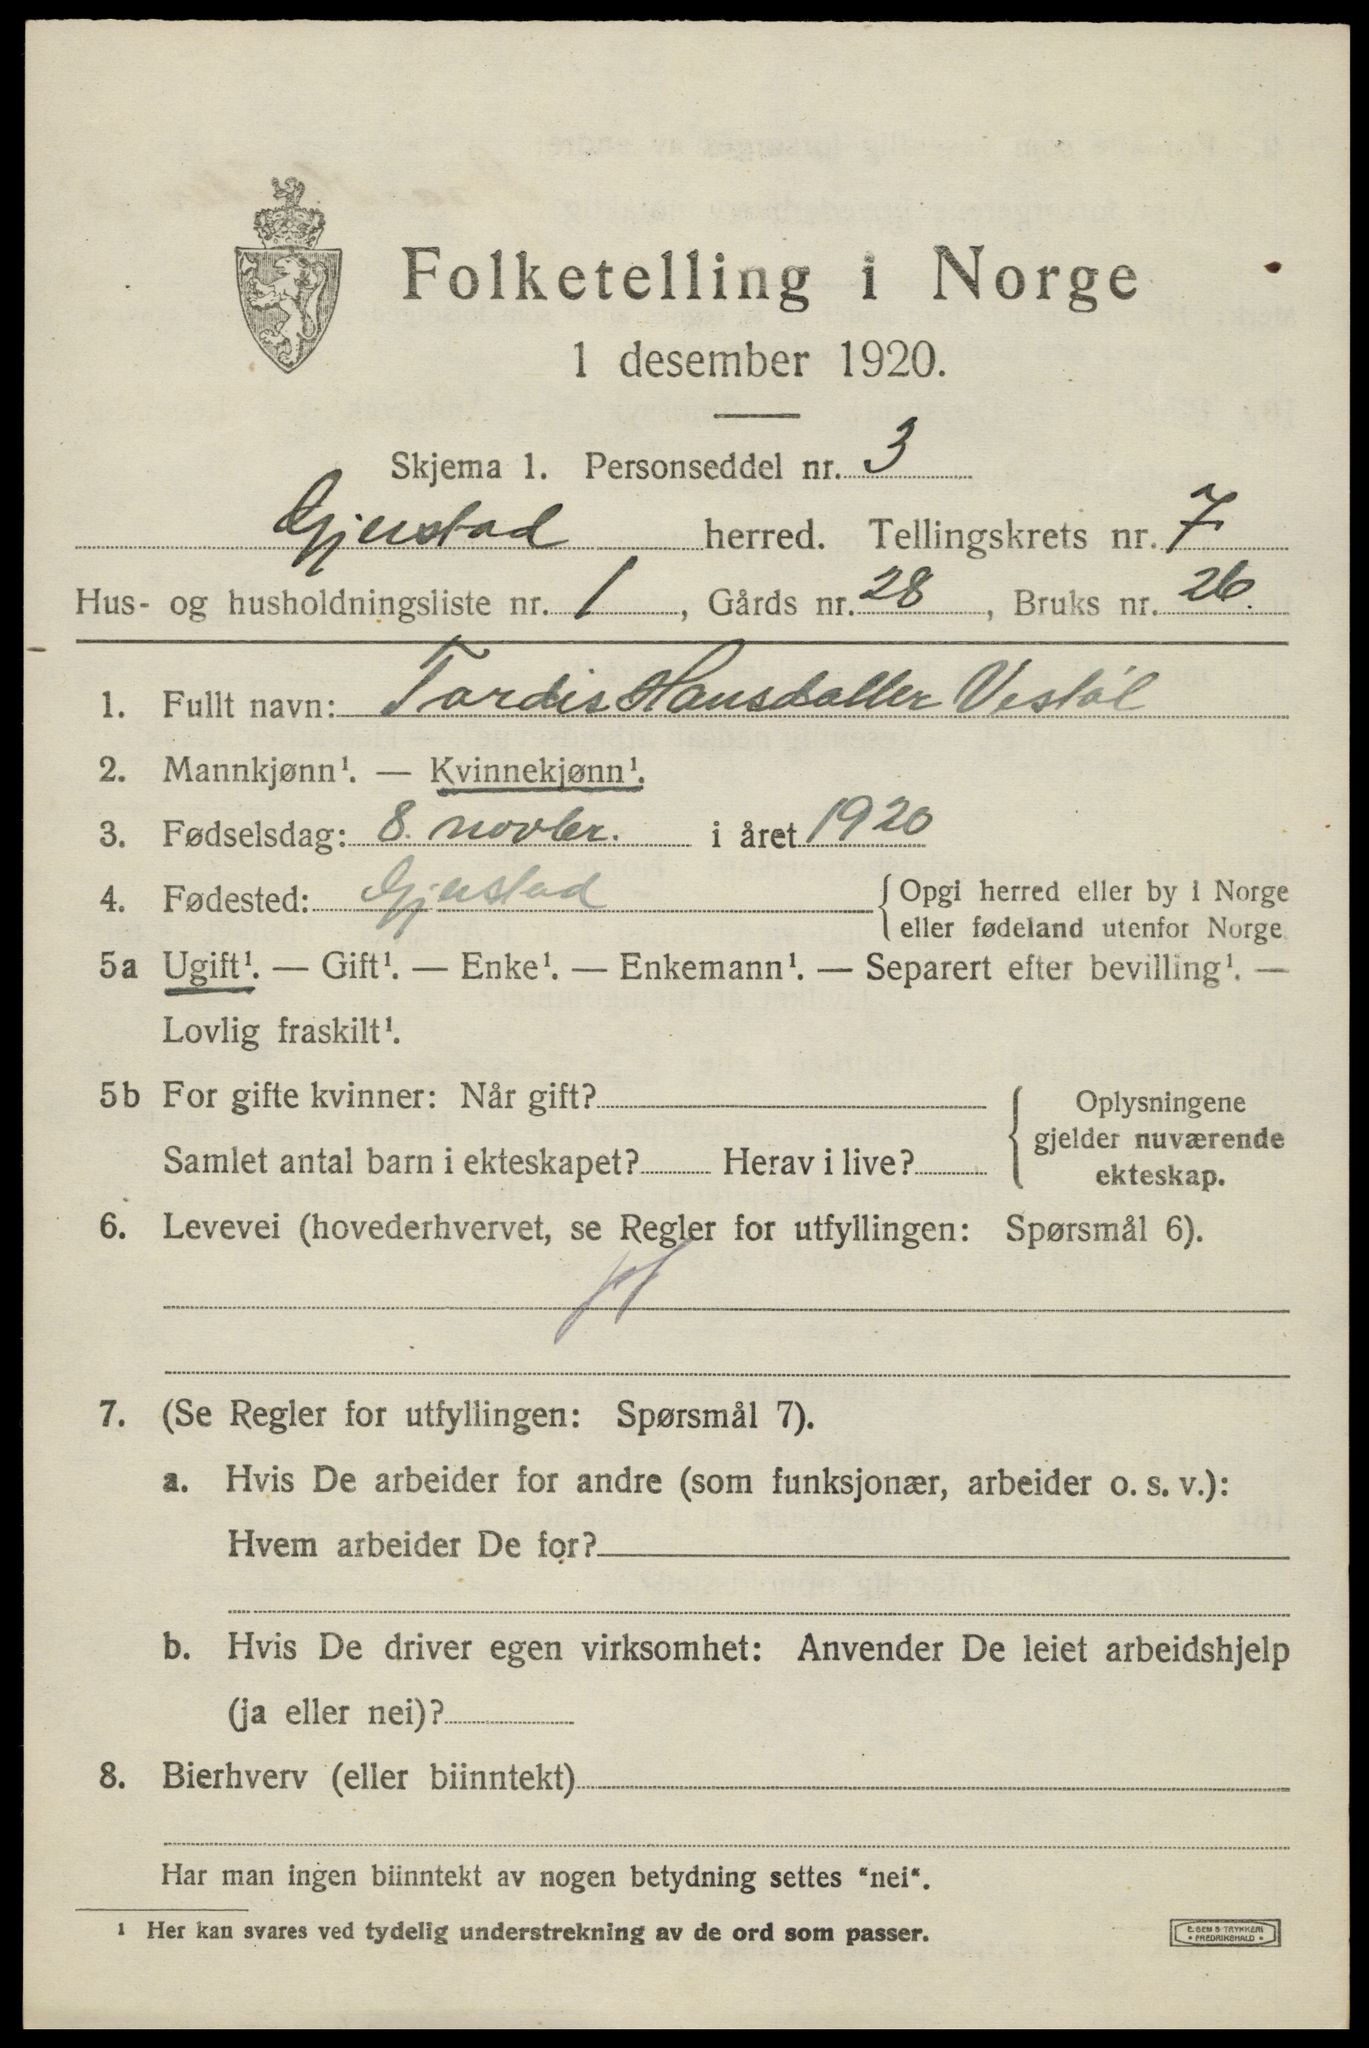 Folketelling i Norge
1 desember 1920.
Skjema 1. Personseddel nr. 3
Gjerstad herred. Tellingskrets nr. 7
Hus- og husholdningsliste nr. 1, Gårds nr. 28, Bruks nr. 26.
1. Fullt navn: Tordis Hansdatter Vestøl
2. Mannkjønn¹. — Kvinnekjønn¹.
3. Fødselsdag: 8. novber. i året 1920
4. Fødested: Gjerstad { Opgi herred eller by i Norge
eller fødeland utenfor Norge
5a Ugift¹. — Gift¹. — Enke¹. — Enkemann¹. — Separert efter bevilling¹. —
Lovlig fraskilt¹.
5b For gifte kvinner: Når gift? { Oplysningene
gjelder nuværende
Samlet antal barn i ekteskapet? Herav i live? ekteskap.
6. Levevei (hovederhvervet, se Regler for utfyllingen: Spørsmål 6).
7. (Se Regler for utfyllingen: Spørsmål 7).
a. Hvis De arbeider for andre (som funksjonær, arbeider o. s. v.):
Hvem arbeider De for?
b. Hvis De driver egen virksomhet: Anvender De leiet arbeidshjelp
(ja eller nei)?
8. Bierhverv (eller biinntekt)
Har man ingen biinntekt av nogen betydning settes "nei".
¹ Her kan svares ved tydelig understrekning av de ord som passer.
E. SEM S TRYKKERI
• FREDRIKSHALD •